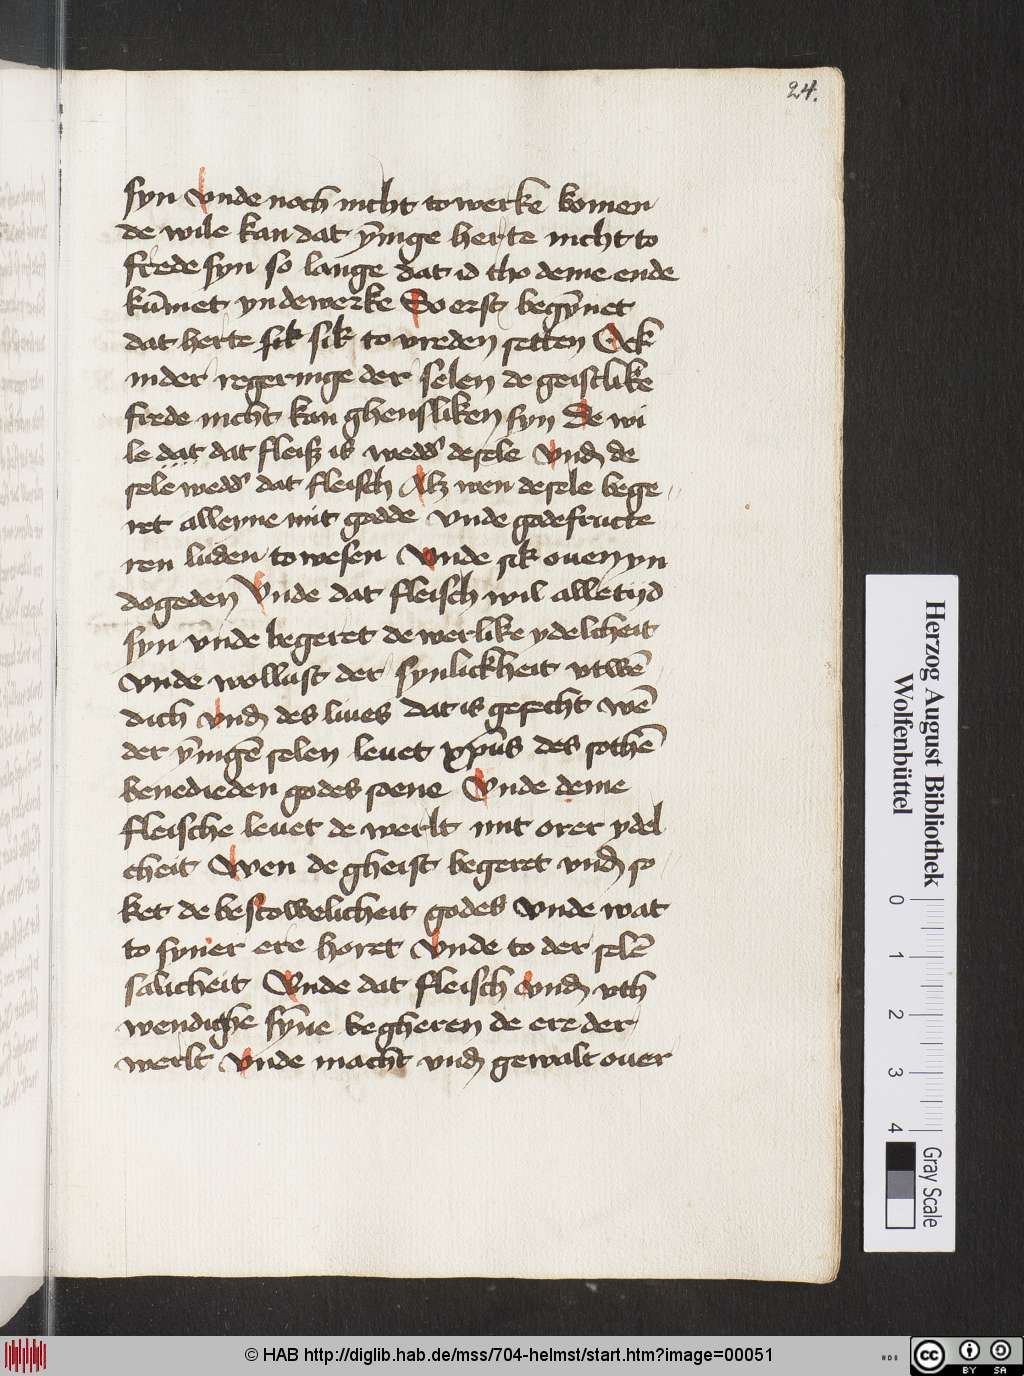 24.
syn vnde noch nicht to werke komen
de wile kan dat ȳnige herte nicht to
frede syn so lange dat id tho deme ende
kūmet yn de werke So erst begȳnet
dat herte sik sik to vreden setten Oek
in der regeringe der selen de geistlike
frede nicht kan ghensliken syn De wi
le dat dat fleisz is wedd' de sele vnd de
sele wedd' dat fleisch Alz wen de sele bege
ret alleyne mit godde vnde gode fructe
ren luden to wesen Vnde sik ouen yn
dogeden Vnde dat fleisch wil alle tijd
syn vnde begeret de werlike ydelcheit
vnde wollust der synlickheit vtwē
dich vnd des liues dat is gesecht wē
der ȳnigē selen leuet xp̄us des sothē
benedieden godes soene Vnde deme
fleische leuet de werlt mit orer ydel
cheit Wen de gheist begeret vnd so
ket de bescowelicheit godes vnde wat
to syner ere horet Vnde to der selē
salicheit Vnde dat fleisch vnd vth
wendighe sȳne begheren de ere der
werlt vnde macht vnd gewalt ouer
Herzog August Bibliothek
Wolfenbüttel
0 1 2 3 4
Gray Scale
© HAB http://diglib.hab.de/mss/704-helmst/start.htm?image=00051
HAB
cc BY SA